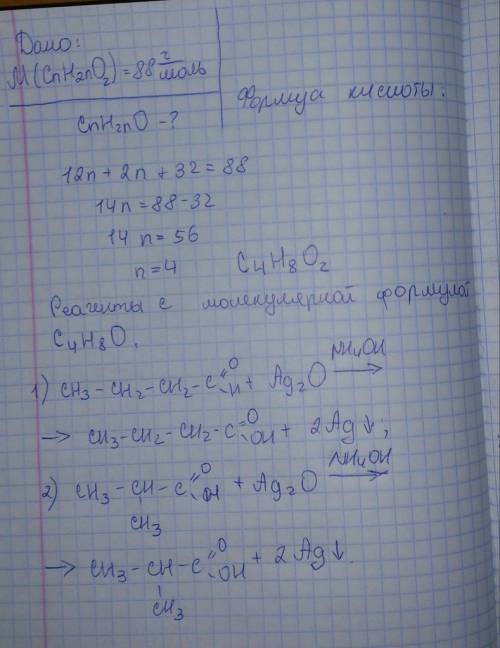 Дано:
M(CnH2nO2) = 88 г/моль
Формула кислоты.
CnH2nO - ?
12n + 2n + 32 = 88
14n = 88 - 32
14 n = 56
n = 4 C4H8O2
Реагенты с молекулярной формулой
C4H8O.
1) CH3 - CH2 - CH2 - C =O -H + Ag2O NH4OH →
→ CH3 - CH2 - CH2 - C =O -OH + 2Ag↓;
2) CH3 - CH - C =O -OH + Ag2O NH4OH →
CH3
→ CH3 - CH - C =O -OH + 2Ag↓.
CH3